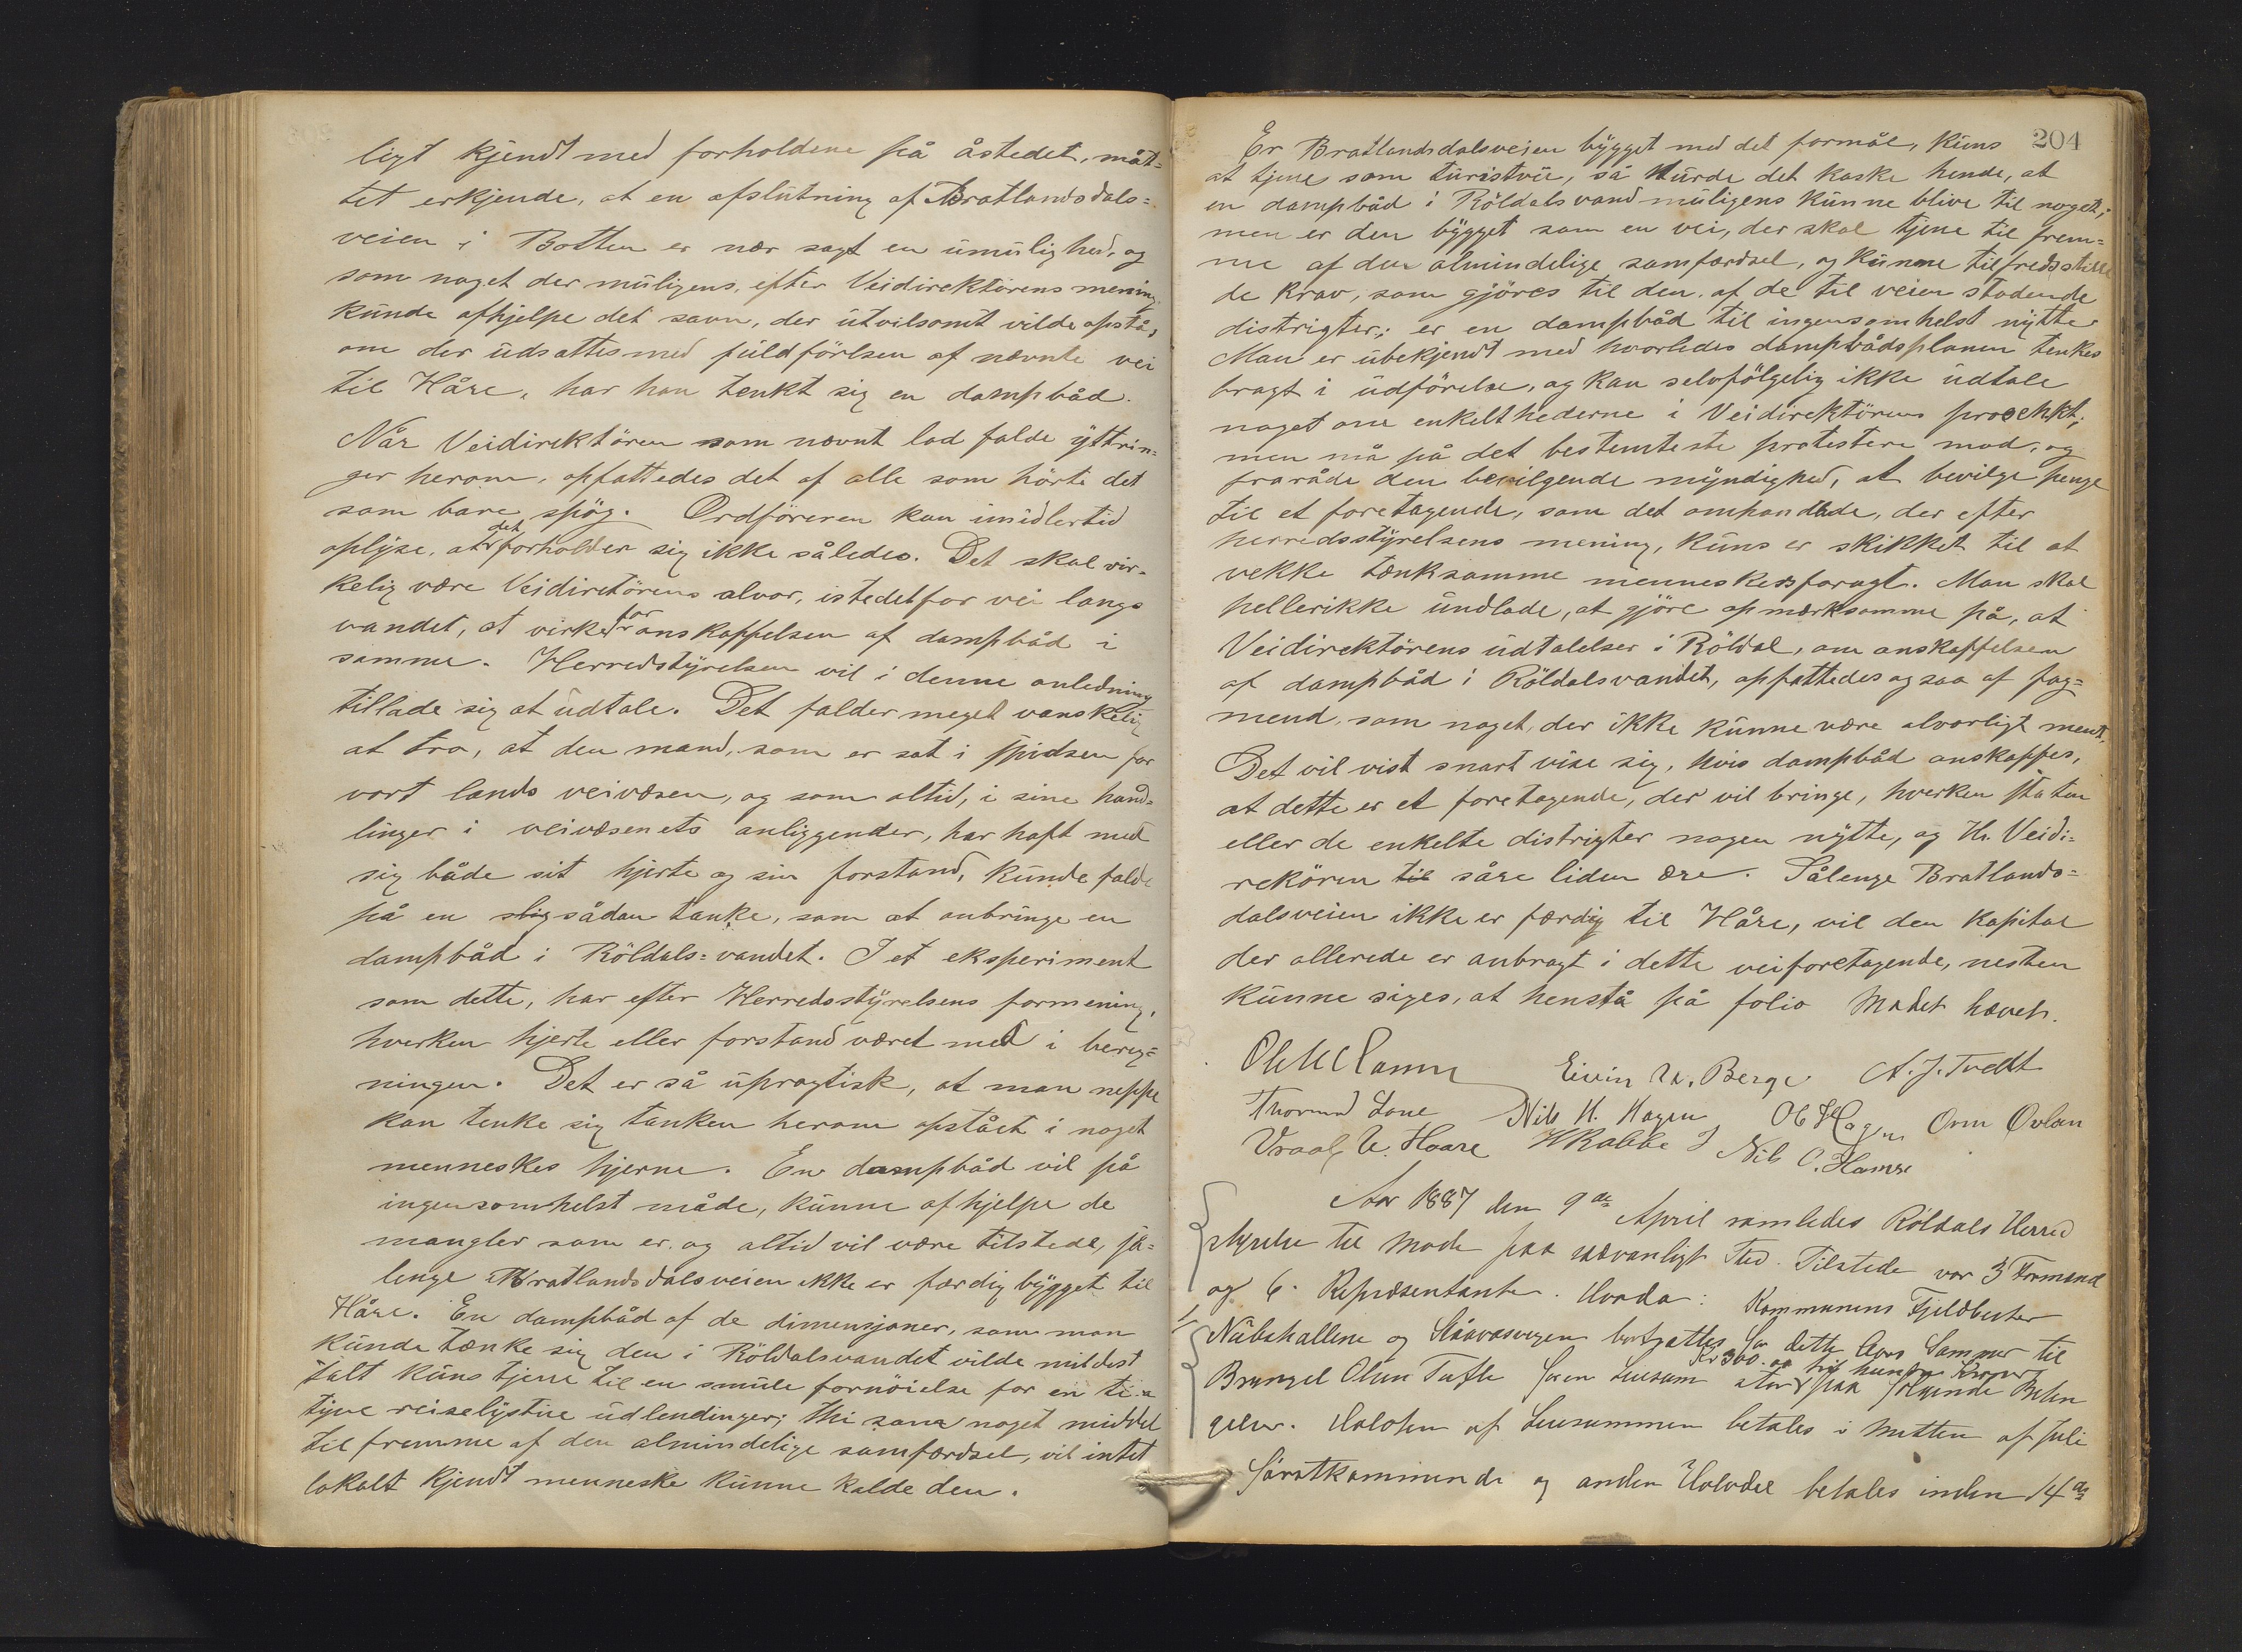 ligt kjendt med forholdene på åstedet, måt=
tet erkjende, at en afslutning af Bratlandsdals=
veien i Botten er nær sagt en umulighed, og
som noget der muligens, efter Veidirektörens mening,
kunde afhjelpe det savn, der utvilsomt vilde opstå,
om der udsattes med fuldförlsen af nævnte vei
til Håre, har han tenkt sig en dampbåd.
Når Veidirektören som nævnt lod falde yttrin=
ger herom, opfattedes det af alle som hörte det
som bare spög. Ordföreren kan imidlertid
oplyse, at det forholder sig ikke således. Det skal vir=
kelig være Veidiretörens alvor, istedetfor vei langs
vandet, at virke for anskaffelsen af dampbåd i
samme. Herredstyrelsen vil i denne anledning
tillade sig at udtale. Det falder meget vanskelig
at tro, at den mand, som er sat i spidsen for
vort lands veivæsen, og som altid, i sine hand=
linger i veivæsenets anliggender, har haft med
sig både sit hjerte og sin forstand, kunde falde
på en slig sådan tanke, som at anbringe en
dampbåd i Röldals=vandet. I et eksperiment
som dette, har efter Herredsstyrelsens formening,
hverken hjerte eller forstand været med i bereg=
ningen. Det er så upragtisk, at man neppe
kan tenke sig tanken herom opstået i noget
menneskes hjerne. En dampbåd vil på
ingensomhelst måde, kunne afhjelpe de
mangler som er, og altid vil være tilstede, så=
lenge Bratlandsdalsveien ikke er færdig bygget til
Håre. En dampbåd af de dimensjoner, som man
kunde tænke sig den i Röldalsvandet vilde mildest
talt kuns tjene til en smule fornöielse for en ti a
tyve reiselystne udlendinger; thi som noget middel
til fremme af den almindelige samfærdsel, vil intet
lokalt kjendt menneske kunne kalde den.
204
Er Bratlandsdalsveien bygget med det formål, kuns
at tjene som turistvei, så turde det kaske hende, at
en dampbåd i Röldalsvand muligens kunne blive til noget;
men er den bygget som en vei, der skal tjene til frem=
me af den almindelige samfærdsel, og kunne tilfredsstille
de krav, som gjöres til den af de til veien stodende
distrigter; er en dampbåd til ingensomhelst nytte.
Man er ubekjendt med hvorledes dampbådsplanen tenkes
bragt i udförelse, og kan selvfölgelig ikke udtale
noget om enkelthederne i Veidirektörens prosekt;
men må på det bestemteste protestere mod, og
fraråde den bevilgende myndighed, at bevilge penge
til et foretagende, som det omhandlede, der efter
herredsstyrelsens mening, kuns er skikket til at
vekke tænksomme menneskers foragt. Man skal
hellerikke undlade, at gjöre opmærksomme på, at
Veidirektörens udtalelser i Röldal, om anskaffelsen
af dampbåd i Röldalsvandet, opfattedes ogsaa af fag=
mend, som noget, der ikke kunne være alvorligt ment.
Det vil vist snart vise sig, hvis dampbåd anskaffes,
at dette er et foretagende, der vil bringe, hverken staten
eller de enkelte distrigter nogen nytte, og Hr. Veidi=
rekören til såre liden ære. Sålenge Bratlands=
dalsveien ikke er færdig til Håre, vil den kapital
der allerede er anbragt i dette veiforetagende, nesten
kunne siges, at henstå på folio Mødet hævet.
Eivin U. Berge A. J. Tvedt
Thormod Lone Nils H. Hagen Ol H Hagen Orm Øvlan
Vraal U. Haare H Rabbe Nils O. Hamre
Aar 1887 den 9de April samledes Röldals Herred
styrelse til Møde paa sædvanligt Sted. Tilstede var 3 Formænd
og 6 Repræsentanter. Hvorda: Kommunens Fjeldbeiter
Nübshallene og Slaavasvegen bortsattes for dette Aars Sommer til
Brungel Olsen Tufte for en Leiesum stor Kr 300 paa følgende Betin
gelser. Halvten af Leiesummen betales i Mitten af Juli
førstkommende og anden Halvdel betales inden 14de